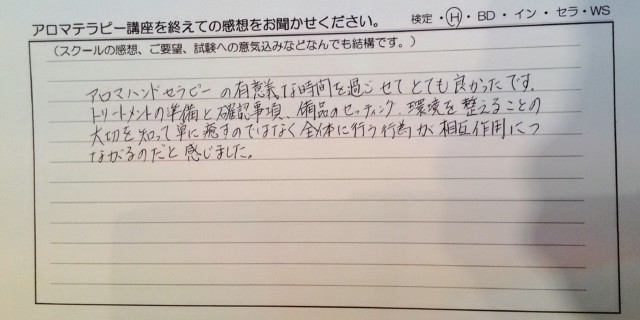 アロマテラピー講座を終えての感想をお聞かせください。 検定・Ⓗ・BD・イン・セラ・WS
(スクールの感想、ご要望、試験への意気込みなどなんでも結構です。)
アロマハンドセラピーの有意義な時間を過ごせてとても良かったです。
トリートメントの準備と確認事項、備品のセッティング、環境を整えることの
大切を知って単に癒すのではなく全体に行う行為が相互作用につ
ながるのだと感じました。